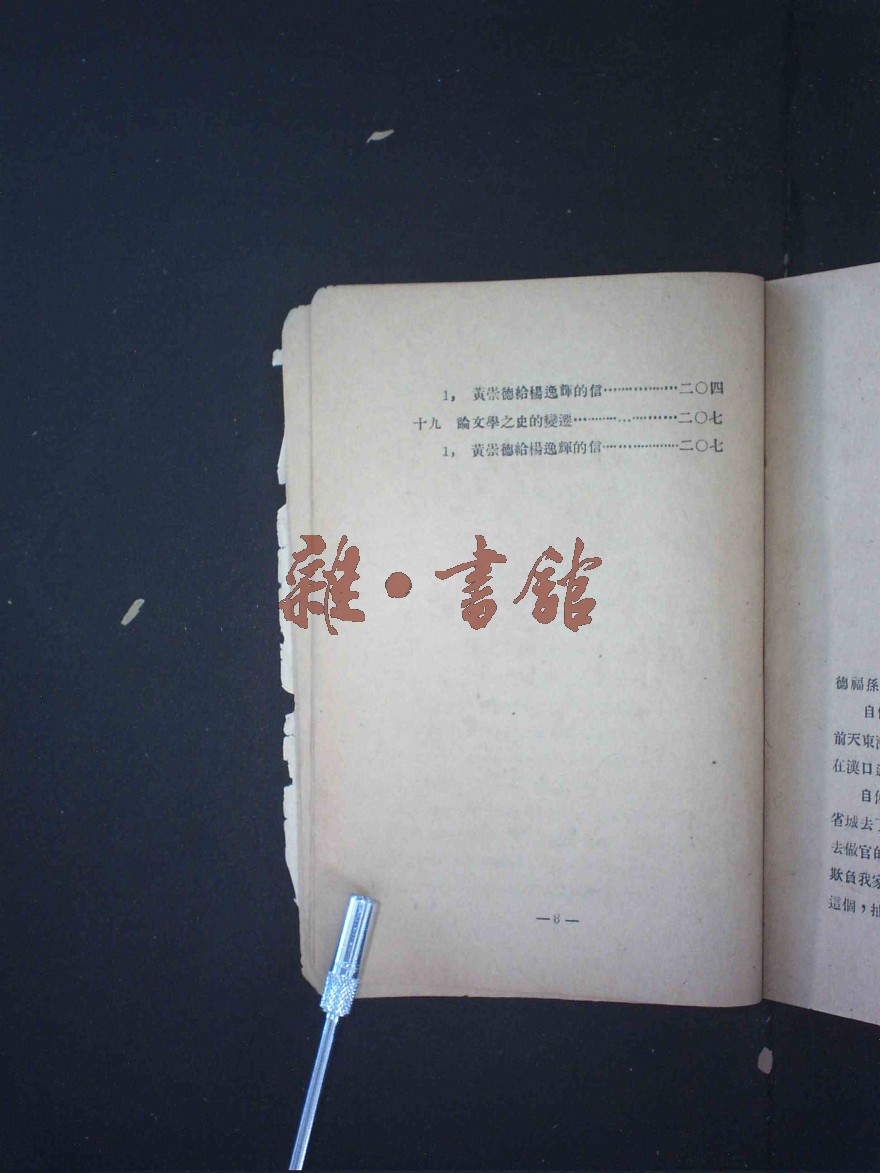 1， 黃崇德給楊逸輝的信………………二〇四
十九 論文學之史的變遷………………二〇七
1， 黃崇德給楊逸輝的信………………二〇七
雜•書館
—8—
德福孫
自
前天東
在漢口
自
省城去
去做官的
欺負我家
這個，